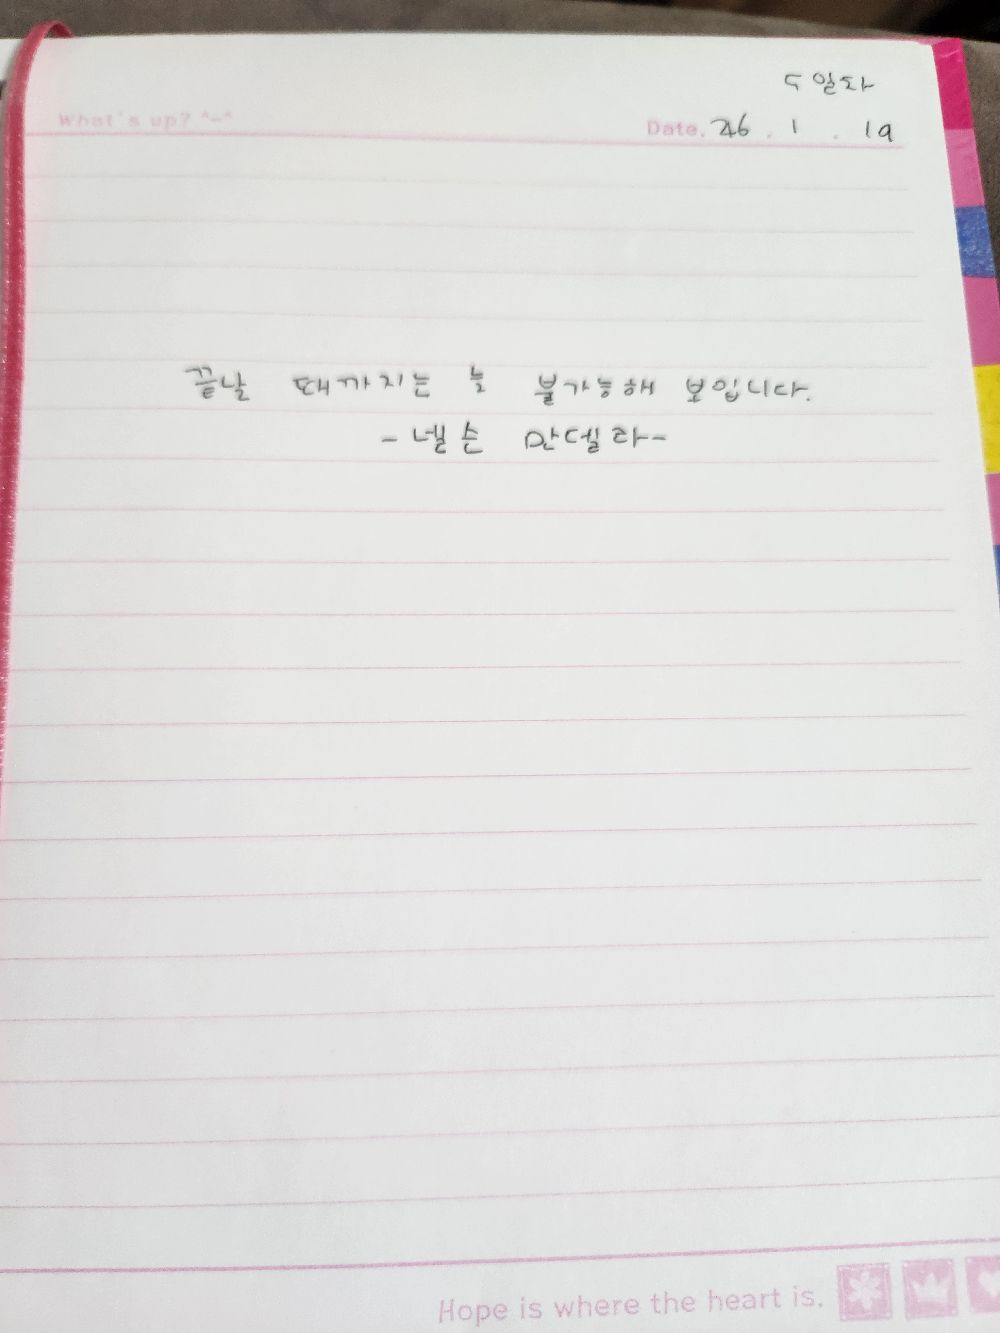 5일차
What's up? ^-^
Date. 26 . 1 . 19
끝날 때까지는 늘 불가능해 보입니다.
- 넬슨 만델라 -
Hope is where the heart is.